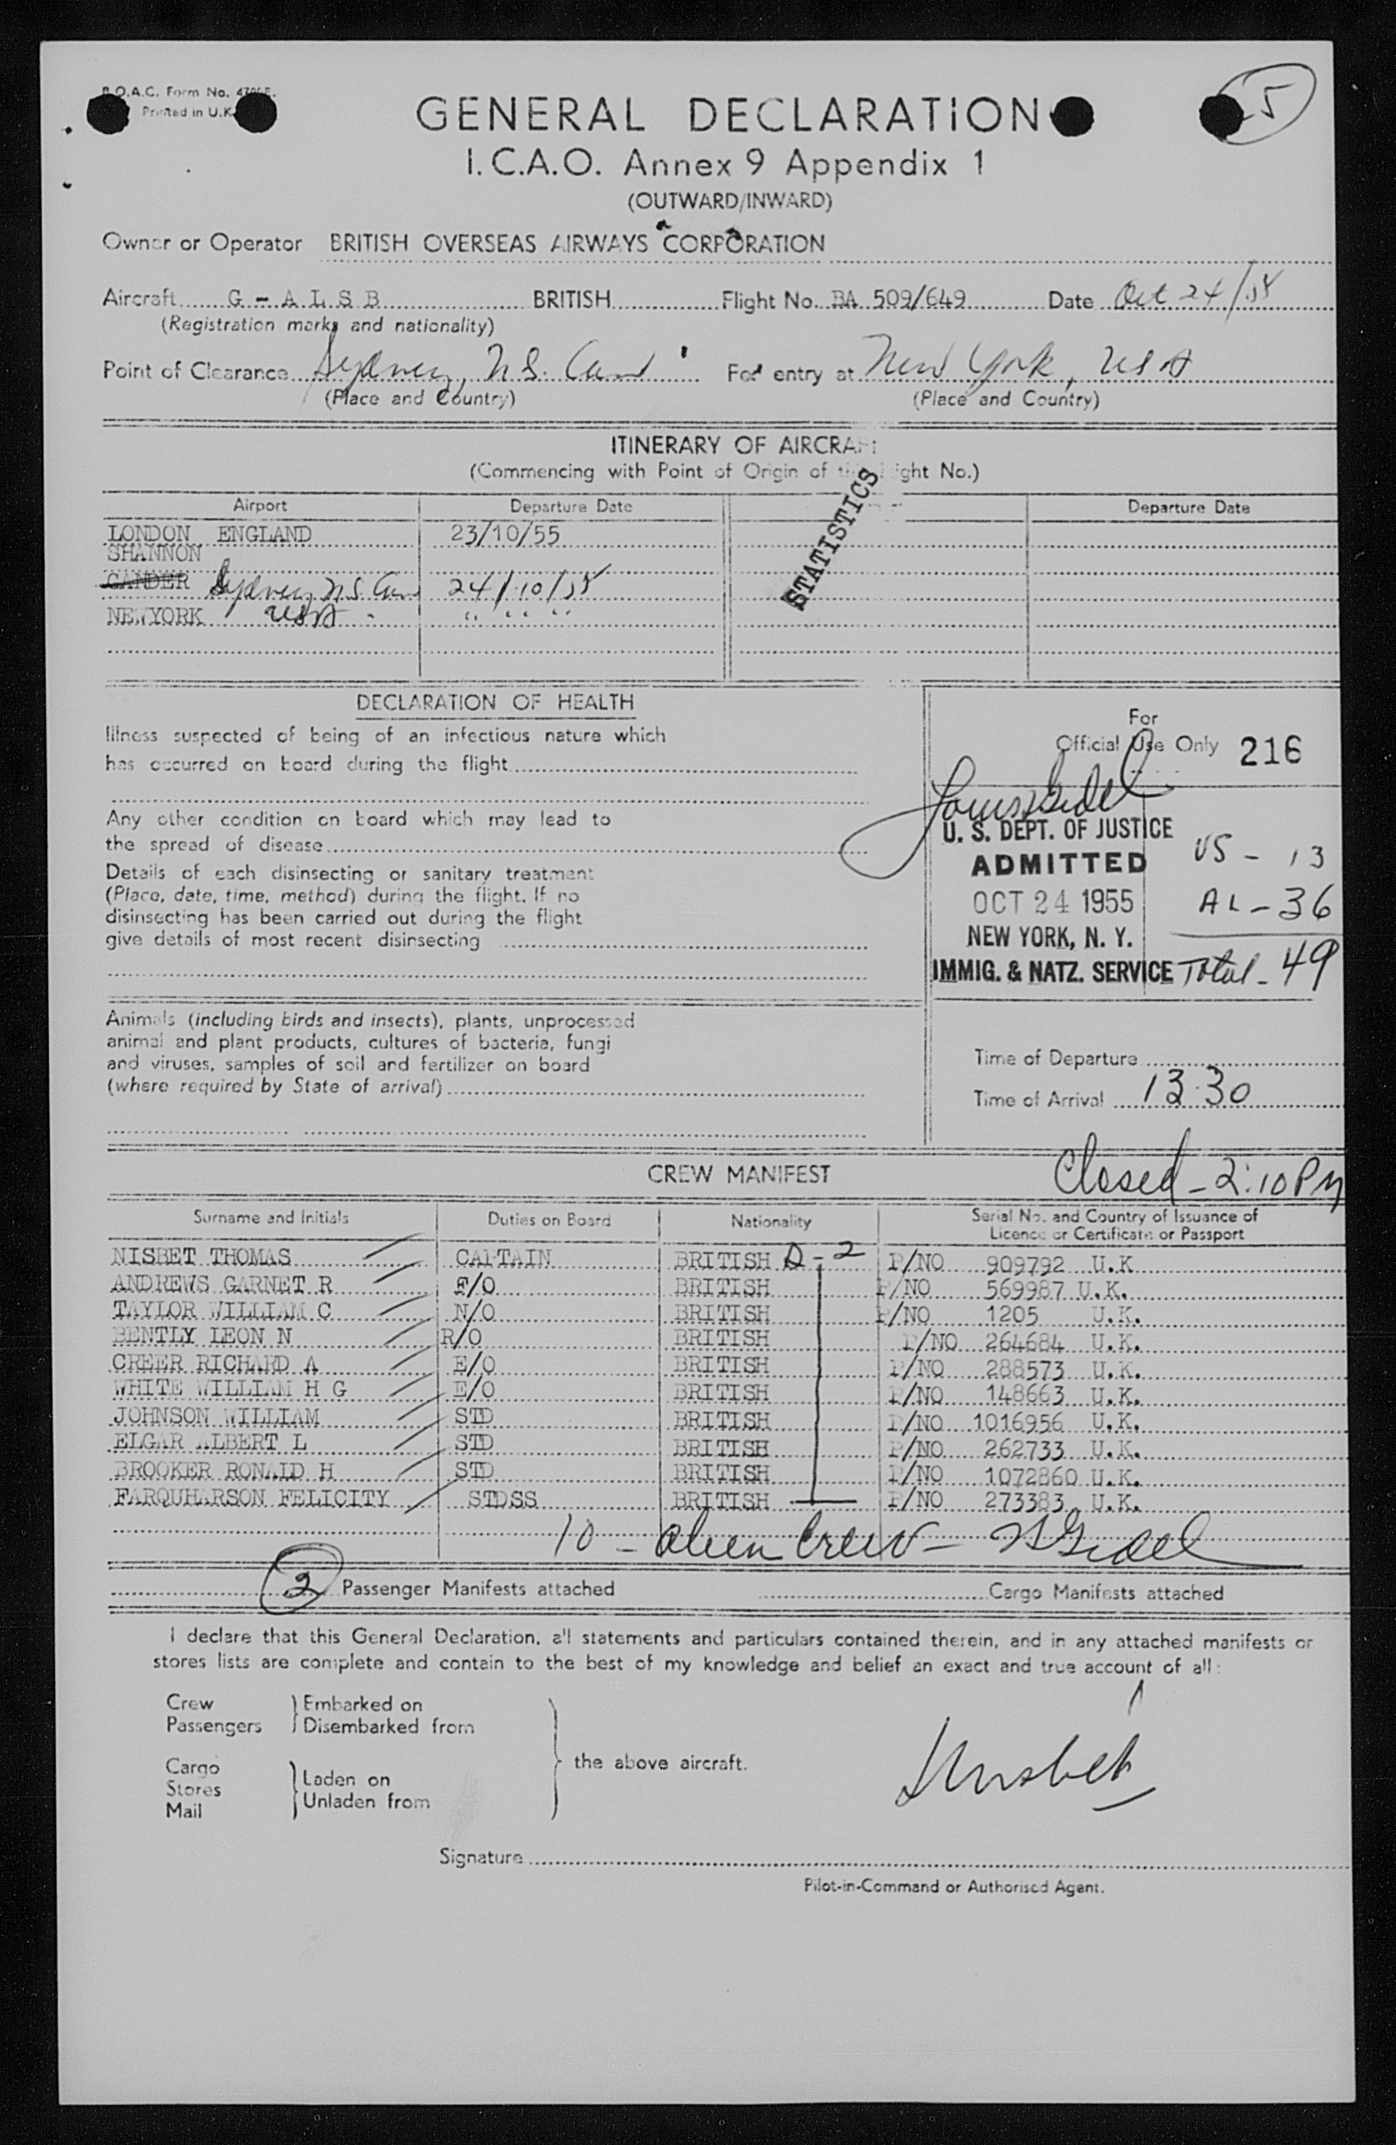 B.O.A.C. Form No.
Printed in U.K.
5
GENERAL DECLARATION
I.C.A.O. Annex 9 Appendix 1
(OUTWARD/INWARD)
Owner or Operator BRITISH OVERSEAS AIRWAYS CORPORATION
Aircraft G - A L S B BRITISH Flight No. BA 509/649 Date Oct 24/55
(Registration marks and nationality)
Point of Clearance Sydney, N.S. Can For entry at New York, USA
(Place and Country) (Place and Country)
ITINERARY OF AIRCRAFT
(Commencing with Point of Origin of this Flight No.)
STATISTICS
Airport Departure Date Departure Date
LONDON ENGLAND 23/10/55
SHANNON
GANDER Sydney, N.S. Can 24/10/55
NEWYORK USA " " "
DECLARATION OF HEALTH
Illness suspected of being of an infectious nature which
has occurred on board during the flight
Any other condition on board which may lead to
the spread of disease
Details of each disinsecting or sanitary treatment
(Place, date, time, method) during the flight. If no
disinsecting has been carried out during the flight
give details of most recent disinsecting
Animals (including birds and insects), plants, unprocessed
animal and plant products, cultures of bacteria, fungi
and viruses, samples of soil and fertilizer on board
(where required by State of arrival)
For
Official Use Only 216
U. S. DEPT. OF JUSTICE
ADMITTED
OCT 24 1955
NEW YORK, N. Y.
IMMIG. & NATZ. SERVICE
US - 13
AL - 36
Total - 49
Time of Departure
Time of Arrival 13.30
Closed - 2:10 PM
CREW MANIFEST
Surname and Initials Duties on Board Nationality Serial No. and Country of Issuance of
Licence or Certificate or Passport
NISBET THOMAS CAPTAIN BRITISH D - 2 P/NO 909792 U.K
ANDREWS GARNET R F/O BRITISH P/NO 569987 U.K.
TAYLOR WILLIAM C N/O BRITISH P/NO 1205 U.K.
BENTLY LEON N R/O BRITISH P/NO 264684 U.K.
CREER RICHARD A E/O BRITISH P/NO 288573 U.K.
WHITE WILLIAM H G E/O BRITISH P/NO 148663 U.K.
JOHNSON WILLIAM STD BRITISH P/NO 1016956 U.K.
ELGAR ALBERT L STD BRITISH P/NO 262733 U.K.
BROOKER RONALD H STD BRITISH P/NO 1072860 U.K.
FARQUHARSON FELICITY STDSS BRITISH P/NO 273383 U.K.
10 - alien crew -
2 Passenger Manifests attached Cargo Manifests attached
I declare that this General Declaration, all statements and particulars contained therein, and in any attached manifests or
stores lists are complete and contain to the best of my knowledge and belief an exact and true account of all:
Crew Embarked on
Passengers Disembarked from
the above aircraft.
Cargo
Stores Laden on
Mail Unladen from
Signature
Pilot-in-Command or Authorised Agent.